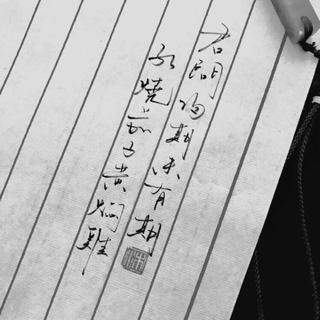 君问归期未有期
红烧茄子黄焖鸡